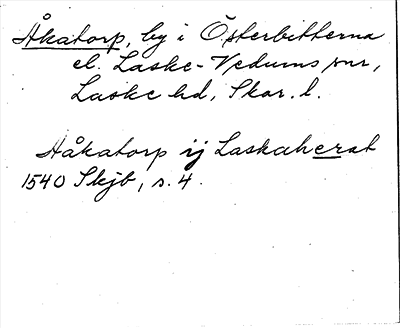 Åkatorp, by i Österbitterna
el. Laske-Vedums snr,
Laske hd, Skar. l.
Håkatorp ij Laskaherat
1540 Skjb, s. 4.